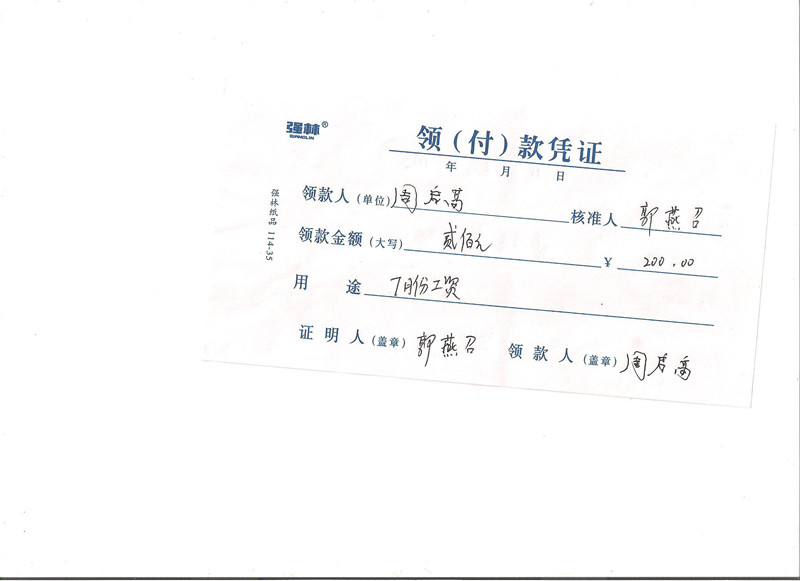 强林®
QIANGLIN
领（付）款凭证
年 月 日
强林纸品 114-35
领款人（单位）周启高 核准人 郭燕召
领款金额（大写）贰佰元 ¥ 200.00
用途 7月份工资
证明人（盖章）郭燕召 领款人（盖章）周启高